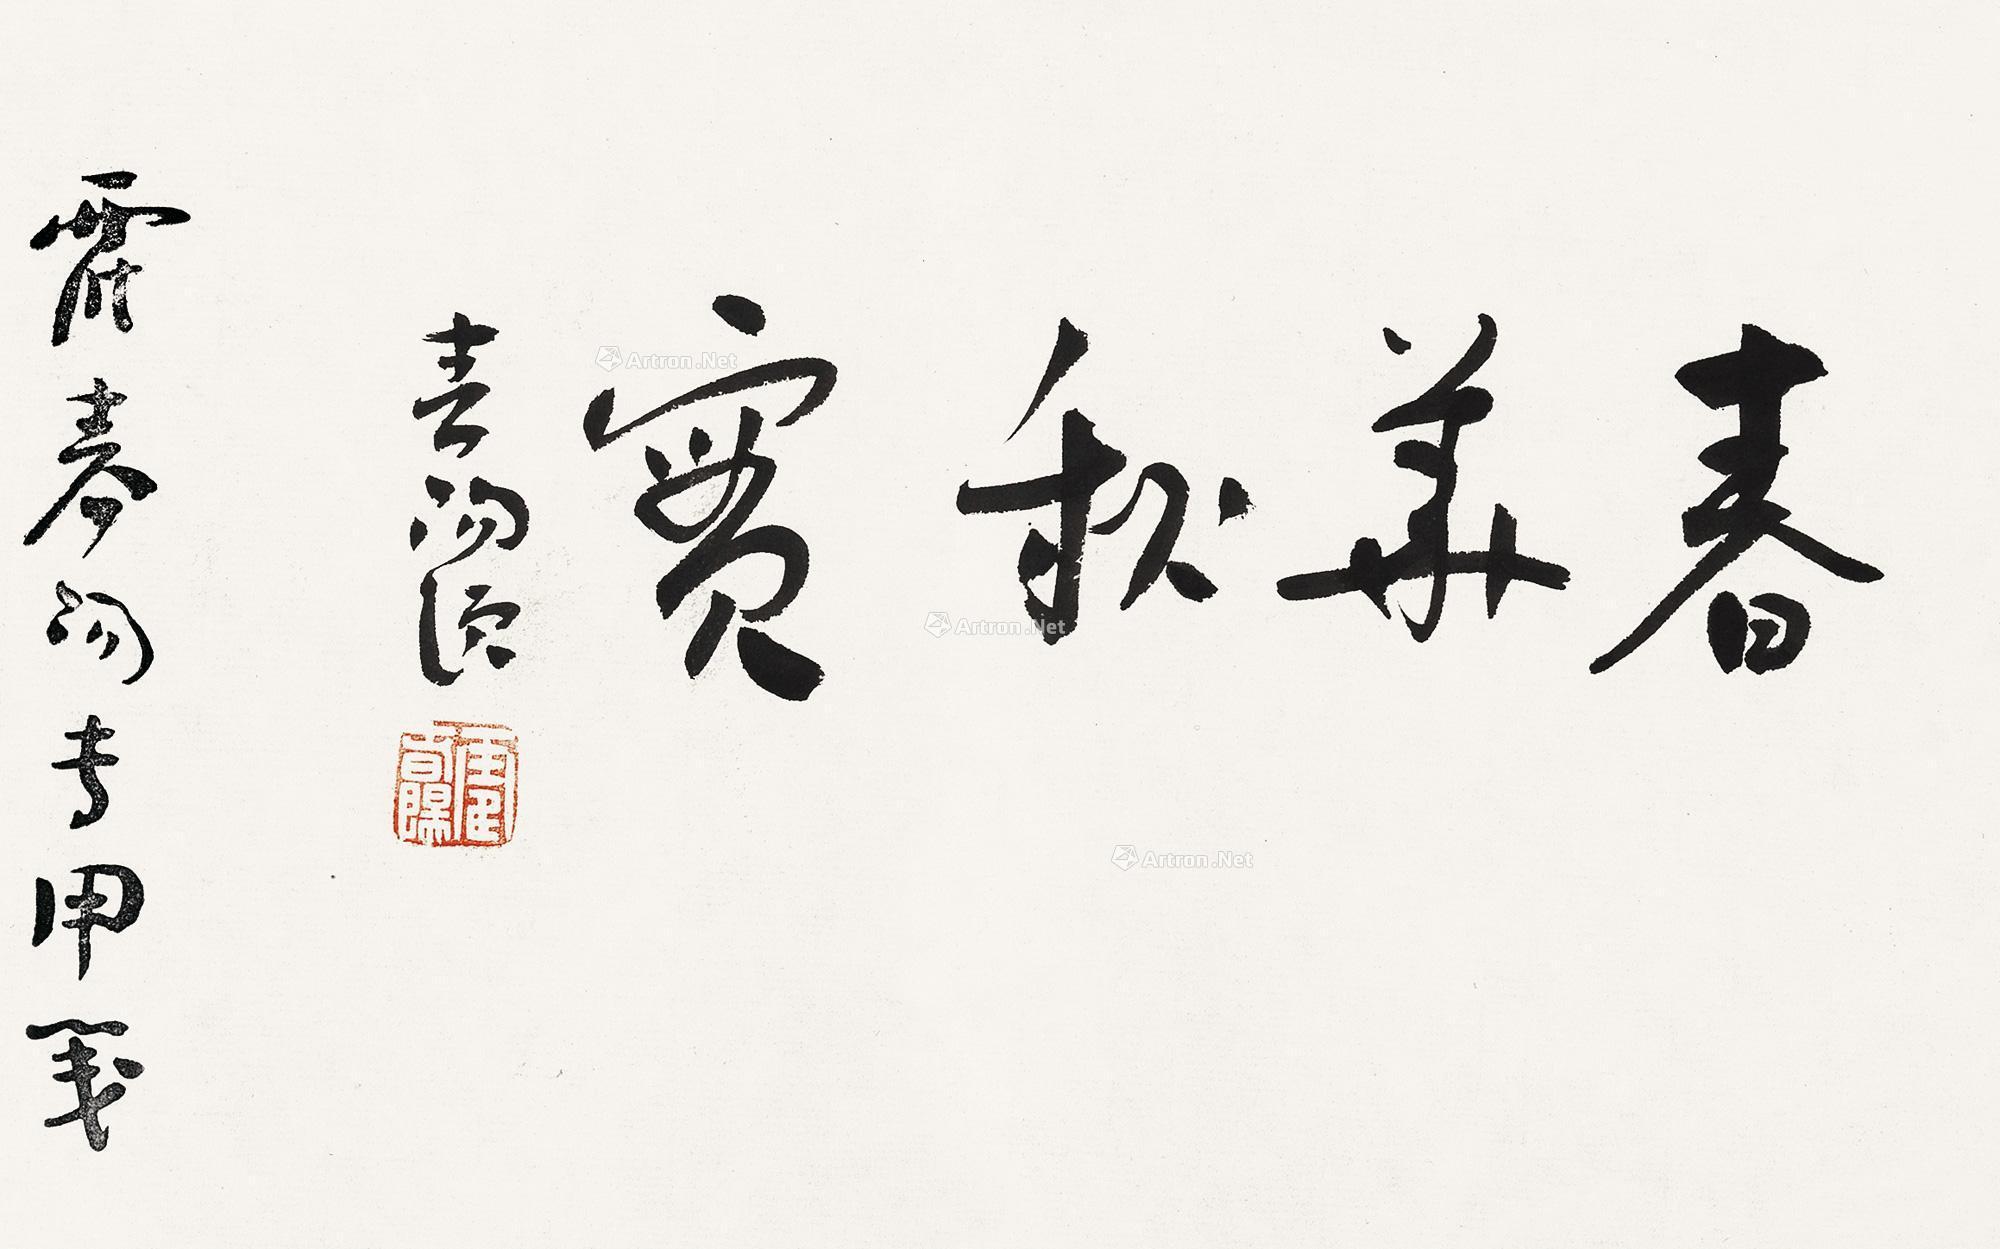 春華秋實
春陽題
霍春陽专用笺
Artron.Net
Artron.Net
Artron.Net